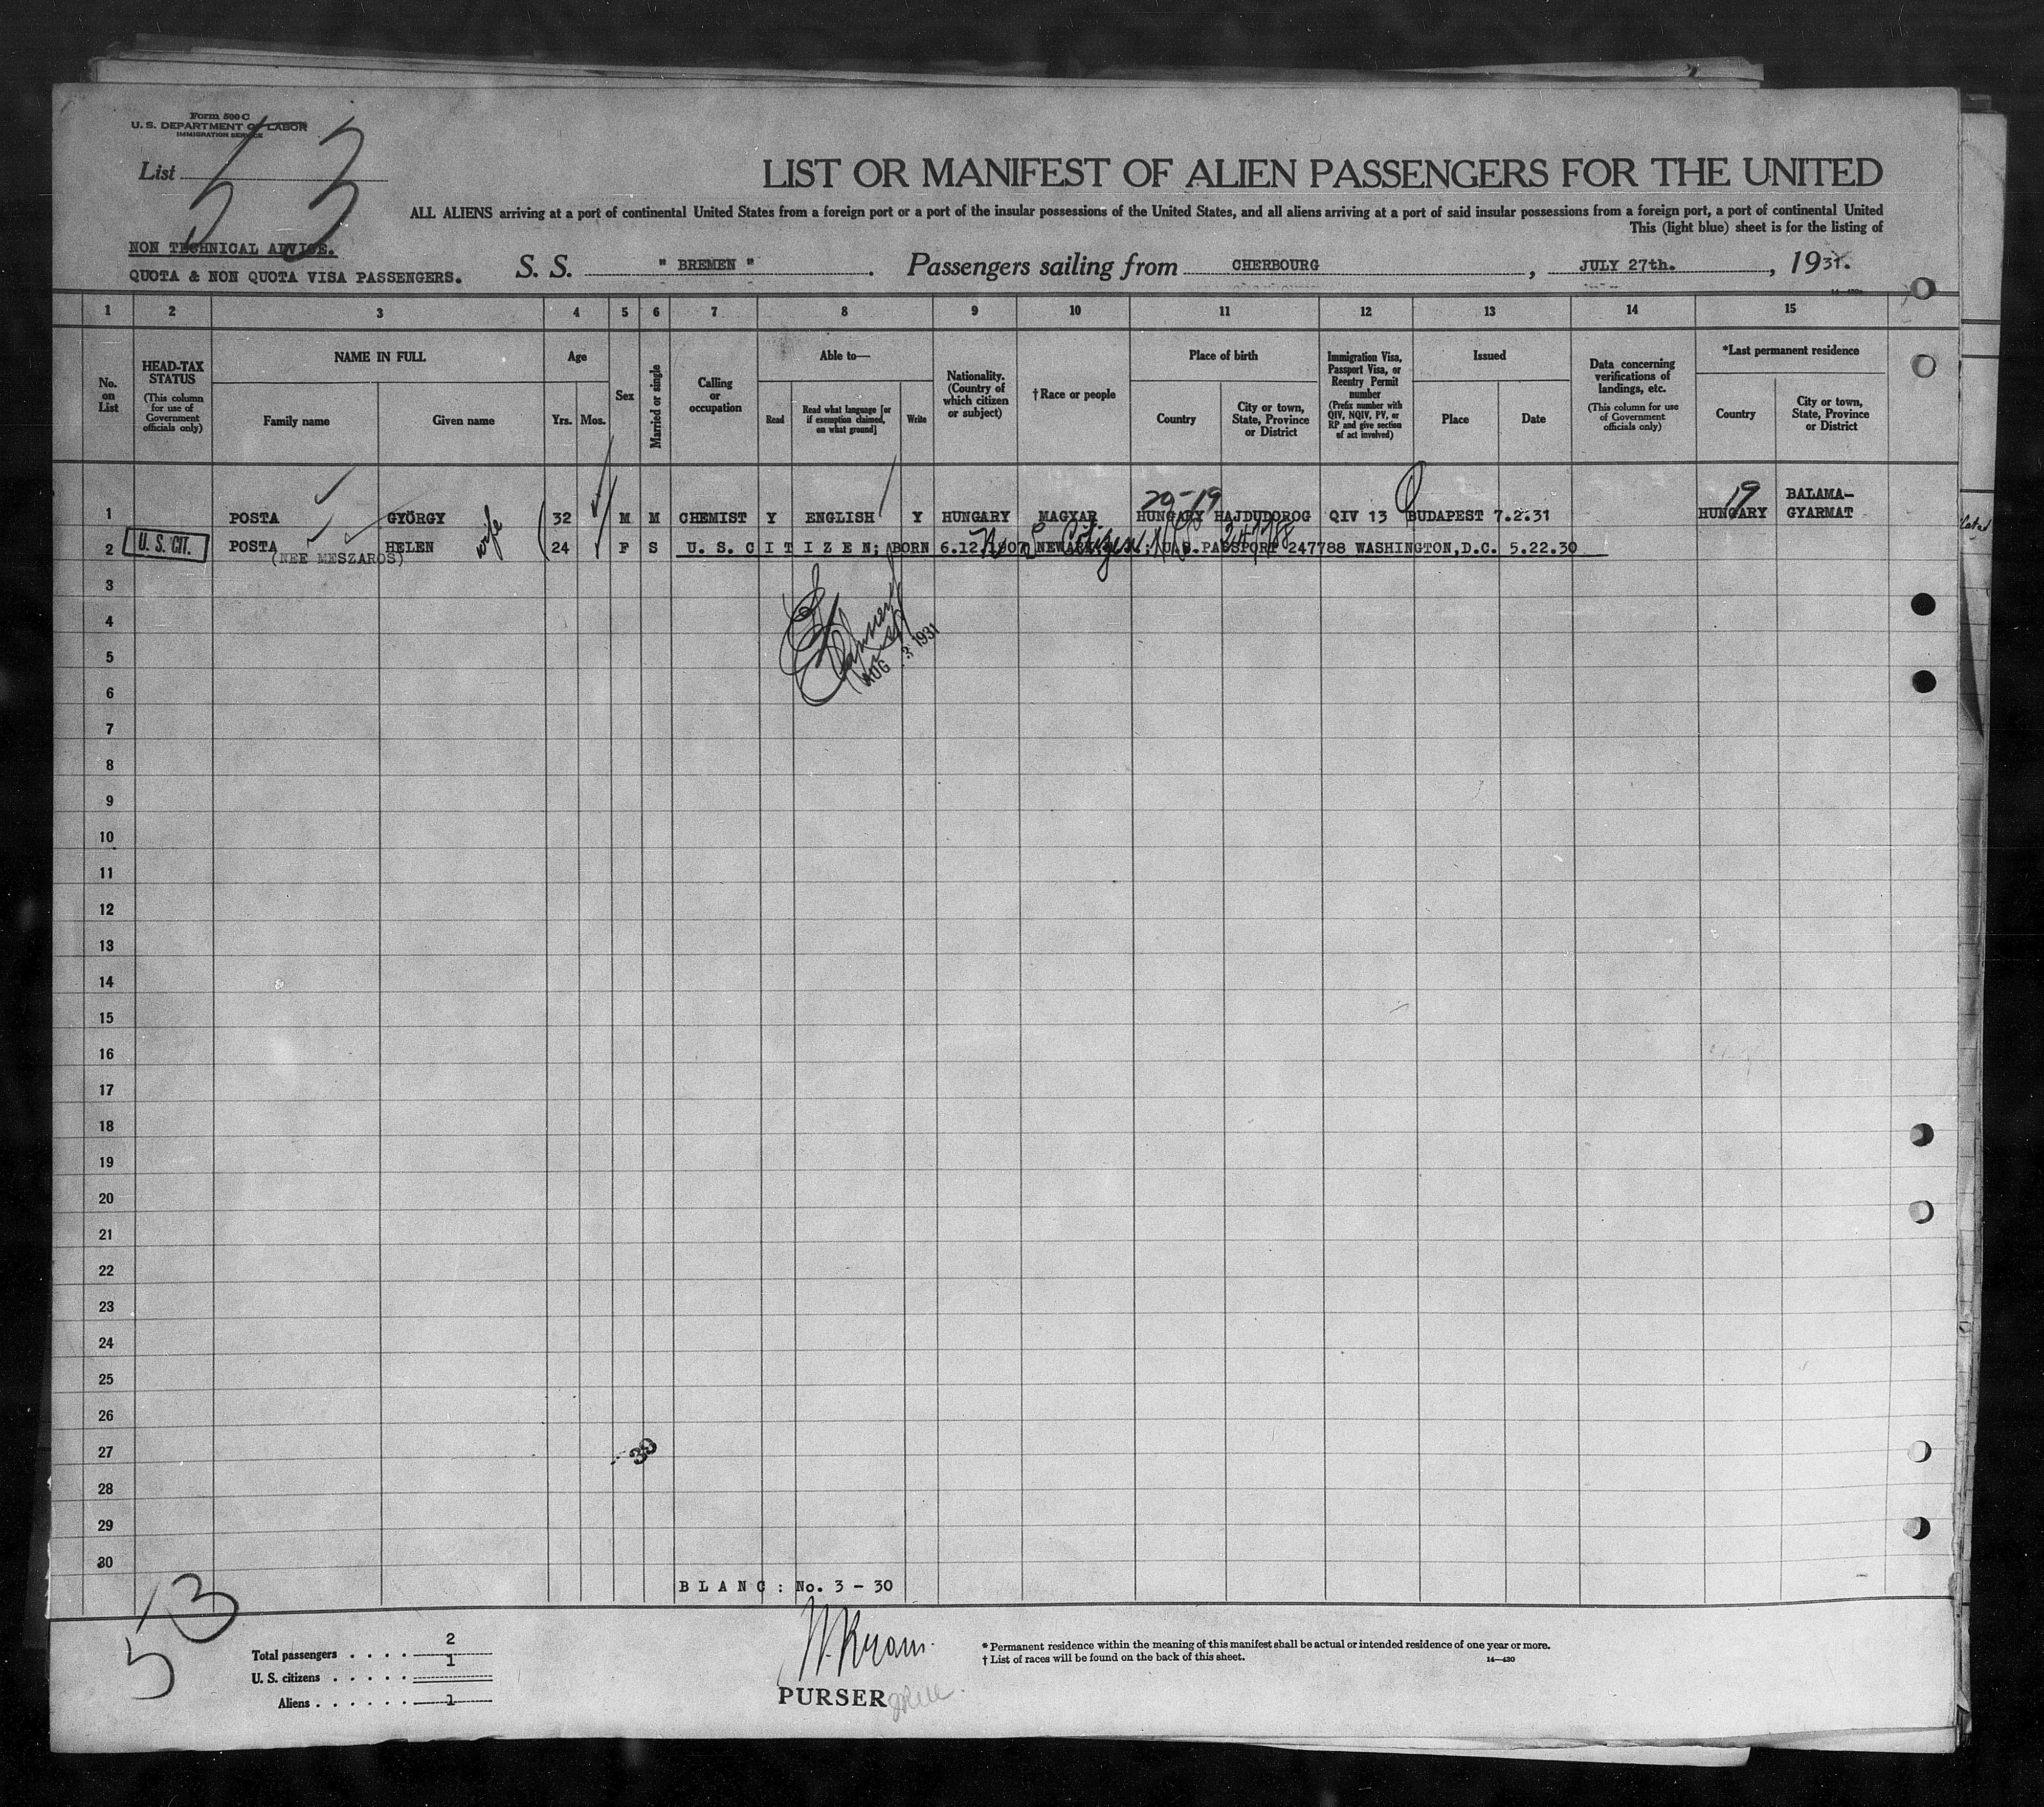 Form 500 C
U. S. DEPARTMENT OF LABOR
IMMIGRATION SERVICE
List 53
LIST OR MANIFEST OF ALIEN PASSENGERS FOR THE UNITED
ALL ALIENS arriving at a port of continental United States from a foreign port or a port of the insular possessions of the United States, and all aliens arriving at a port of said insular possessions from a foreign port, a port of continental United
This (light blue) sheet is for the listing of
NON TECHNICAL ADVICE.
QUOTA & NON QUOTA VISA PASSENGERS.
S. S. " BREMEN " . Passengers sailing from CHERBOURG , JULY 27th. , 1931.
1 2 3 4 5 6 7 8 9 10 11 12 13 14 15
No. on List
HEAD-TAX STATUS
(This column for use of Government officials only)
NAME IN FULL
Family name
Given name
Age
Yrs.
Mos.
Sex
Married or single
Calling or occupation
Able to—
Read
Read what language [or if exemption claimed, on what ground]
Write
Nationality. (Country of which citizen or subject)
†Race or people
Place of birth
Country
City or town, State, Province or District
Immigration Visa, Passport Visa, or Reentry Permit number
(Prefix number with QIV, NQIV, PV, or RP and give section of act involved)
Issued
Place
Date
Data concerning verifications of landings, etc.
(This column for use of Government officials only)
*Last permanent residence
Country
City or town, State, Province or District
29-19
19
1 POSTA GYÖRGY 32 M M CHEMIST Y ENGLISH Y HUNGARY MAGYAR HUNGARY HAJDUDOROG QIV 13 BUDAPEST 7.2.31 HUNGARY BALAMA-GYARMAT
wife
2 U. S. CIT. POSTA HELEN 24 F S U. S. C I T I Z E N; BORN 6.12.1907 NEWARK ; U.S. PASSPORT 247788 WASHINGTON, D.C. 5.22.30
(NEE MESZAROS)
Citizen
3
4
AUG 3 1931
5
6
7
8
9
10
11
12
13
14
15
16
17
18
19
20
21
22
23
24
25
26
27
30
28
29
30
B L A N C : No. 3 - 30
53
Total passengers . . . . 2
U. S. citizens . . . . . 1
Aliens . . . . . . 1
PURSER
* Permanent residence within the meaning of this manifest shall be actual or intended residence of one year or more.
† List of races will be found on the back of this sheet.
14—430